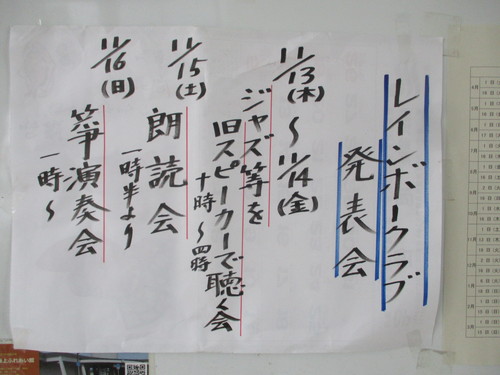 レインボークラブ
発表会
11/13(木)～11/14(金)
ジャズ等を
旧スピーカーで聴く会
十時～四時
11/15(土)
朗読会
一時半より
11/16(日)
箏演奏会
一時～